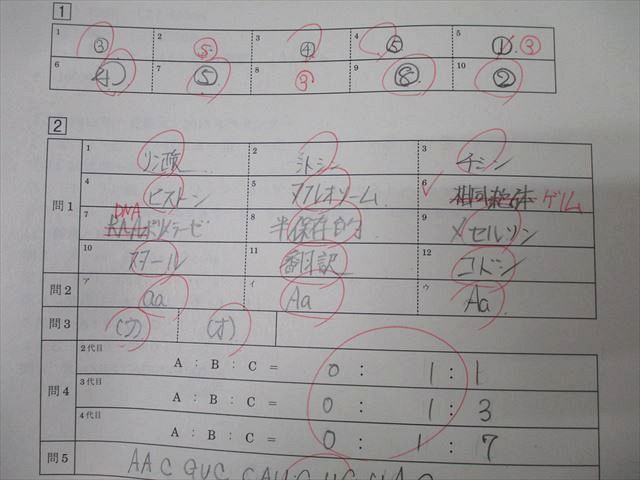 1
1 ③ 2 ⑤ 3 ④ 4 ⑤ 5 ① ③
6 4 7 ⑤ 8 ③ 9 ⑧ 10 ②
2
問1
1 リン酸 2 シトシン 3 チミン
4 ヒストン 5 ヌクレオソーム 6 相同染色体 ゲノム
DNA
7 RNAポリメラーゼ 8 半保存的 9 メセルソン
10 スタール 11 翻訳 12 コドン
問2 ア aa イ Aa ウ Aa
問3 (ウ) (オ)
問4
2代目 A : B : C = 0 : 1 : 1
3代目 A : B : C = 0 : 1 : 3
4代目 A : B : C = 0 : 1 : 7
問5 AAC GUC CAU